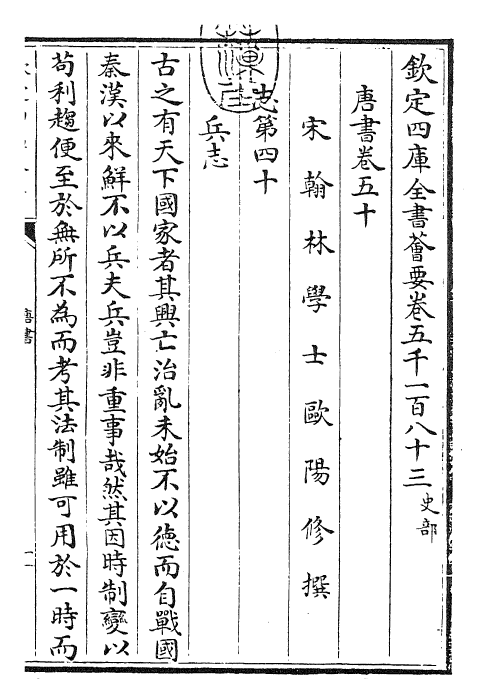 欽定四庫全書薈要卷五千一百八十三 史部
唐書卷五十
宋翰林學士歐陽修撰
志第四十
兵志
古之有天下國家者其興亡治亂未始不以徳而自戰國
秦漢以來鮮不以兵夫兵豈非重事哉然其因時制變以
苟利趨便至於無所不為而考其法制雖可用於一時而
唐書